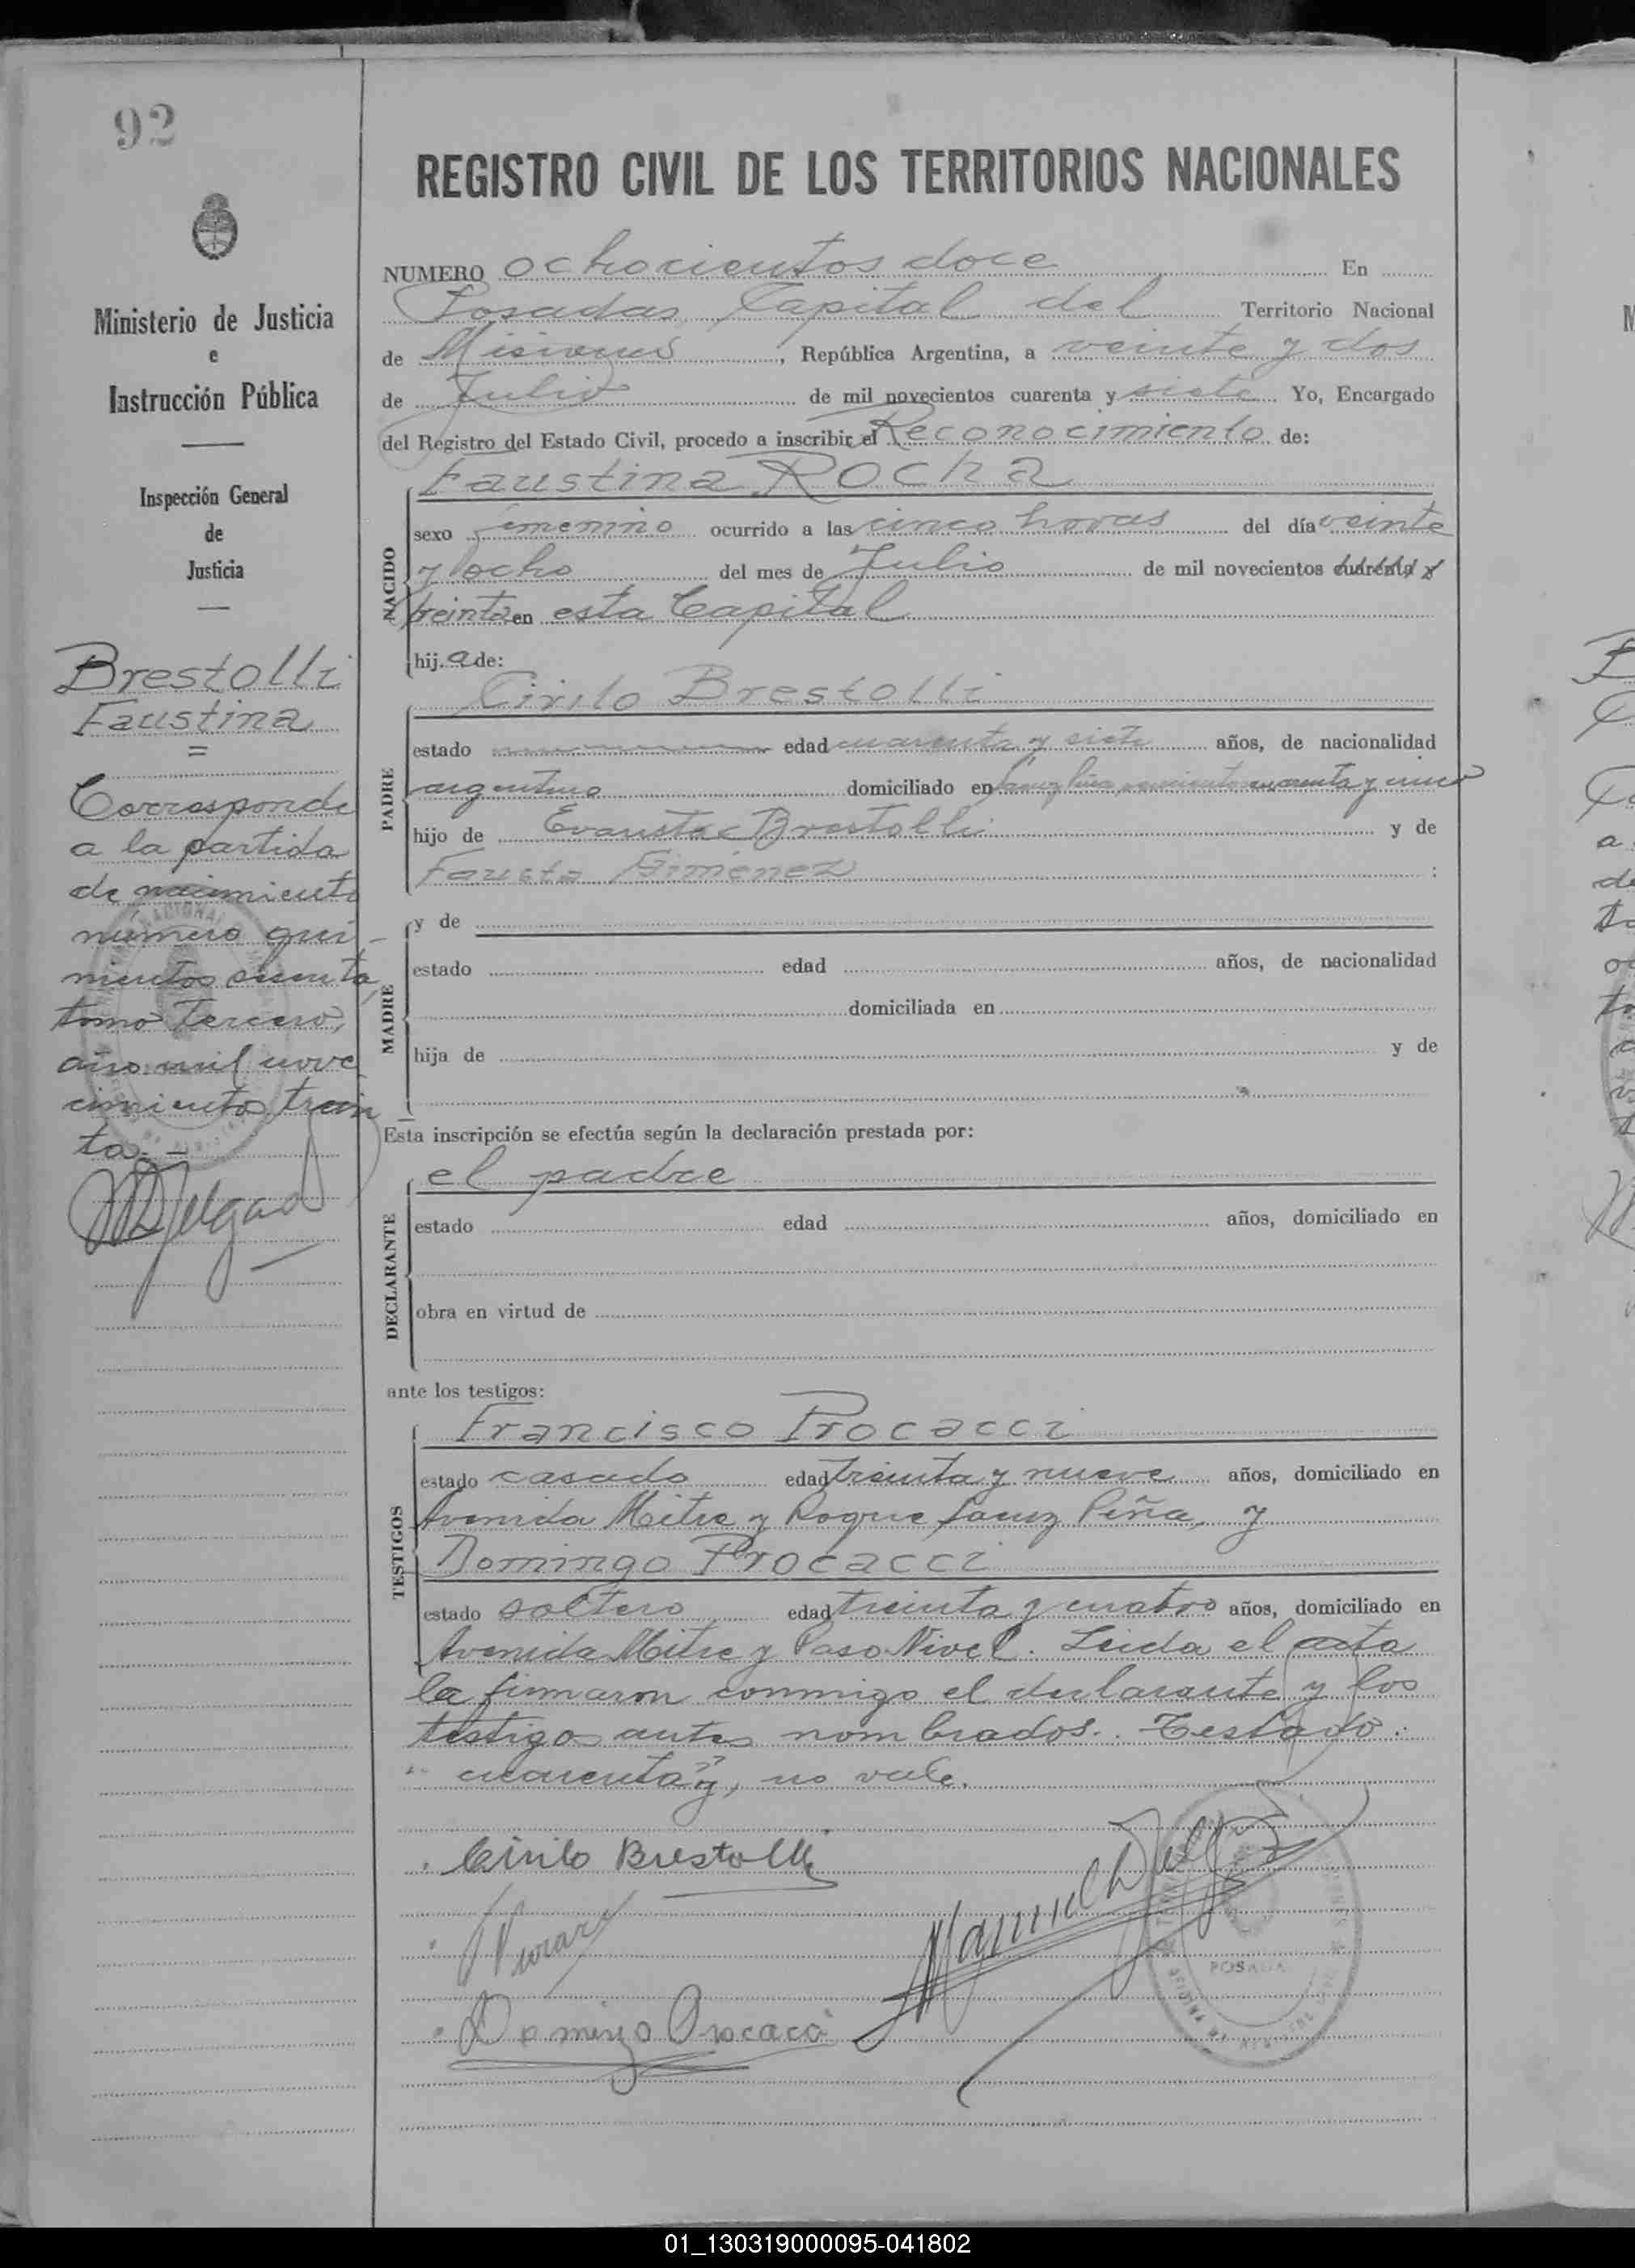 92
Ministerio de Justicia
e
Instrucción Pública
Inspección General
de
Justicia
Brestolli
Faustina
=
Corresponde
a la partida
de nacimiento
número qui-
nientos
tomo Tercero,
año mil nove
cimientos trein
ta.-
REGISTRO CIVIL DE LOS TERRITORIOS NACIONALES
NUMERO ochocientos doce En
Posadas Capital del Territorio Nacional
de Misiones, República Argentina, a veinte y dos
de Julio de mil novecientos cuarenta y siete Yo, Encargado
del Registro del Estado Civil, procedo a inscribir el Reconocimiento de:
Faustina Rocha
NACIDO
sexo femenino ocurrido a las cinco horas del día veinte
y ocho del mes de Julio de mil novecientos cuarenta y
treinta en esta Capital
hij.a de:
Cirilo Brestolli
PADRE
estado edad cuarenta y siete años, de nacionalidad
argentino domiciliado en Saenz Peña novecientos cuarenta y cinco
hijo de Evarista Brestolli y de
Fausta Gimenez :
MADRE
y de
estado edad años, de nacionalidad
domiciliada en
hija de y de
Esta inscripción se efectúa según la declaración prestada por:
el padre
DECLARANTE
estado edad años, domiciliado en
obra en virtud de
ante los testigos:
TESTIGOS
Francisco Procacci
estado casado edad treinta y nueve años, domiciliado en
Avenida Mitre y Roque Saenz Peña, y
Domingo Procacci
estado soltero edad treinta y cuatro años, domiciliado en
Avenida Mitre y Paso Nivel. Leida el acta
la firmaron conmigo el declarante y los
testigos antes nombrados. Testado:
"cuarenta y", no vale.
Cirilo Brestolli
Manuel Delgado
POSADAS
Domingo Procacci
01_130319000095-041802